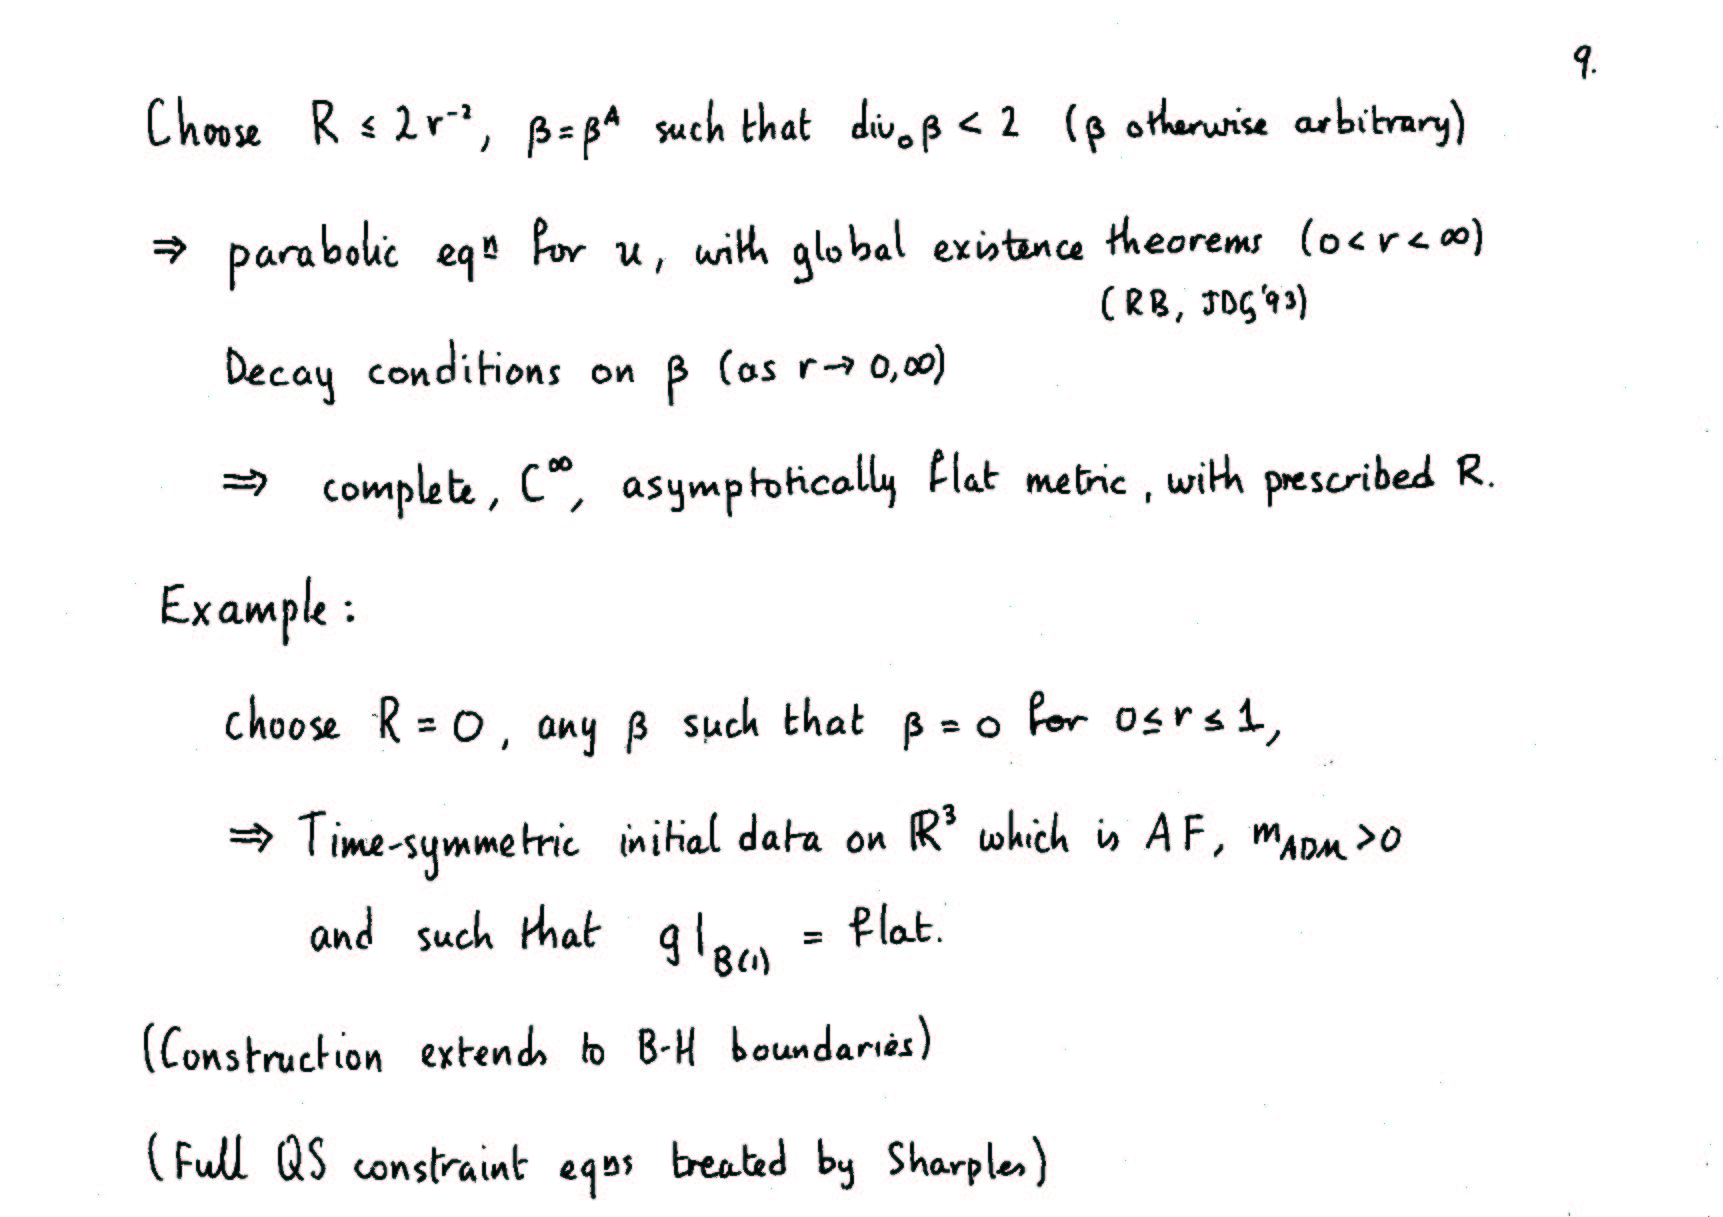 9.
Choose R ≤ 2r⁻², β = βᴬ such that div₀β < 2 (β otherwise arbitrary)
⇒ parabolic eqⁿ for u, with global existence theorems (0 < r < ∞)
(RB, JDG '93)
Decay conditions on β (as r → 0,∞)
⇒ complete, C^∞, asymptotically flat metric, with prescribed R.
Example:
choose R = 0, any β such that β = 0 for 0 ≤ r ≤ 1,
⇒ Time-symmetric initial data on ℝ³ which is AF, m_ADM > 0
and such that g|_B(1) = flat.
(Construction extends to B-H boundaries)
(Full QS constraint eqns treated by Sharples)